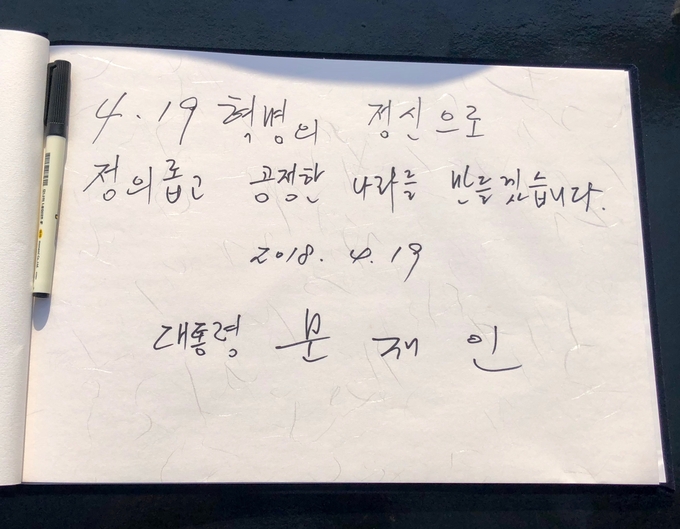 4.19 혁명의 정신으로
정의롭고 공정한 나라를 만들겠습니다.
2018. 4. 19
대통령 문 재 인